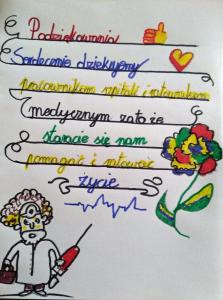 Podziękowania
Serdecznie dziękujemy
pracownikom szpitali i ratownikom
medycznym za to że
staracie się nam
pomagać i ratować
życie